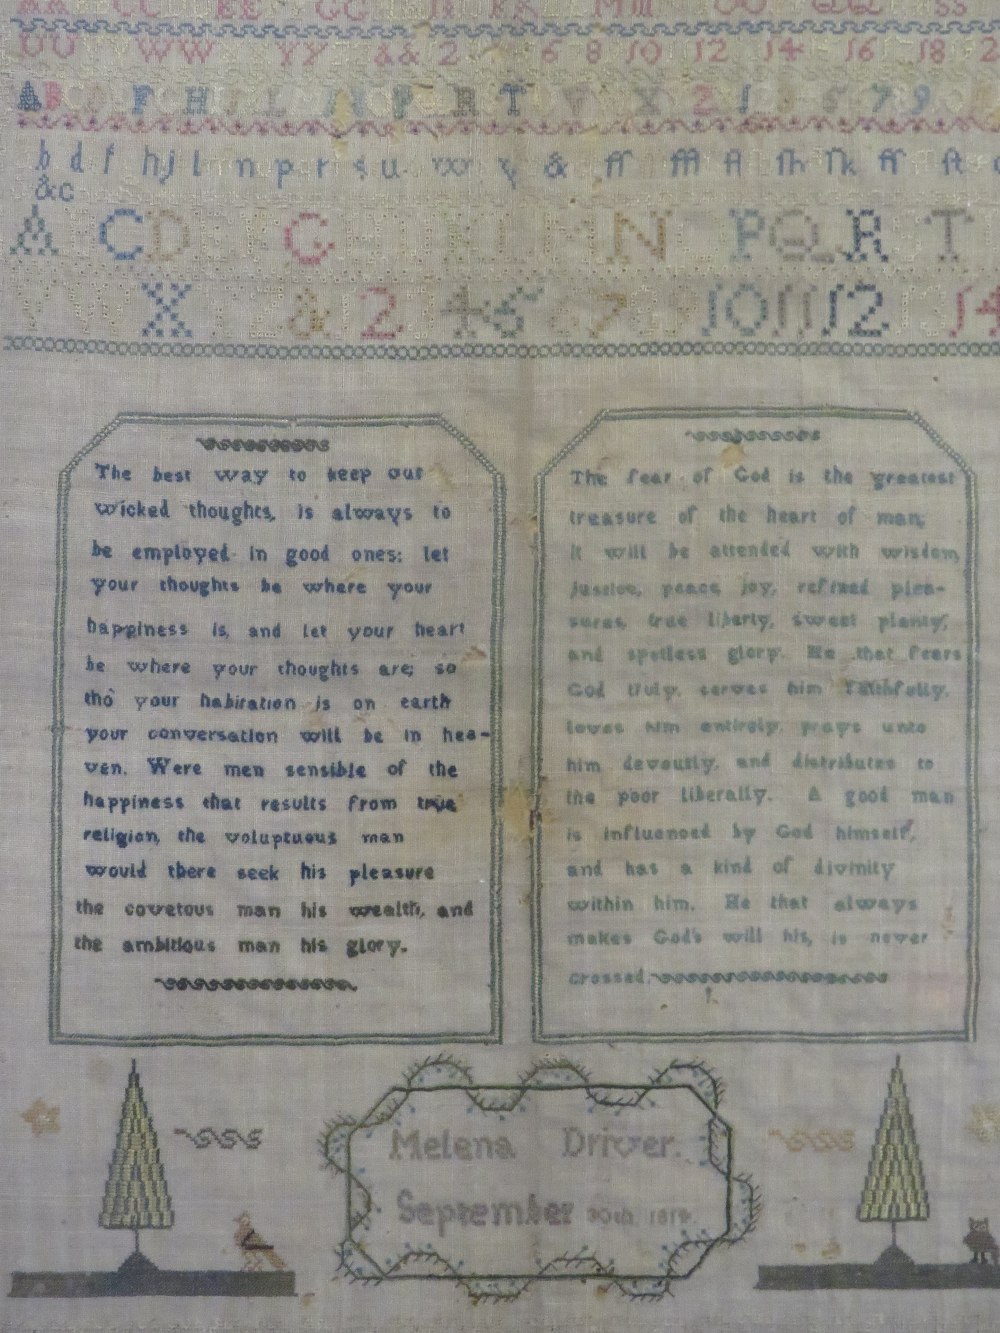 AA CC EE GG II KK MM OO QQ SS
UU WW YY && 2 6 8 10 12 14 16 18
A B F H L P R T V X 2 1 5 7 9
b d f hj l n p r s u w y & ff ffl fl fh fk ff ft
&c
A C D G N P Q R T
X & 2 4 5 6 7 8 9 10 11 12 14
The best way to keep out
wicked thoughts, is always to
be employed in good ones: let
your thoughts be where your
happiness is, and let your heart
be where your thoughts are; so
tho' your habitation is on earth
your conversation will be in hea-
ven. Were men sensible of the
happiness that results from true
religion, the voluptuous man
would there seek his pleasure
the covetous man his wealth, and
the ambitious man his glory.
The fear of God is the greatest
treasure of the heart of man,
it will be attended with wisdom,
justice, peace, joy, refined plea-
sures, true liberty, sweet plenty,
and spotless glory. He that fears
God truly, serves him faithfully,
loves him entirely, prays unto
him devoutly, and distributes to
the poor liberally. A good man
is influenced by God himself,
and has a kind of divinity
within him. He that always
makes God's will his, is never
crossed.
Melena Driver.
September 30th 1819